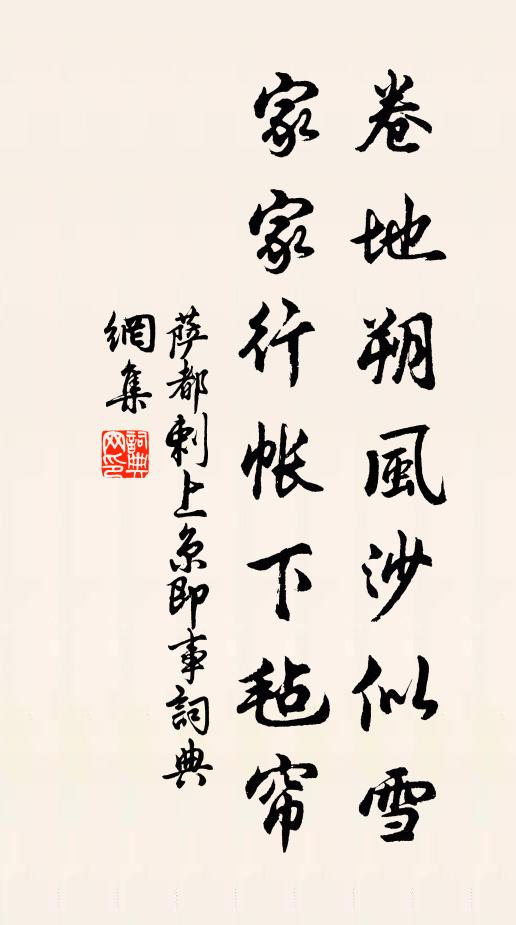 卷地朔風沙似雪
家家行帳下毡帘
薩都剌上京即事詞典
網集
詞典
网印